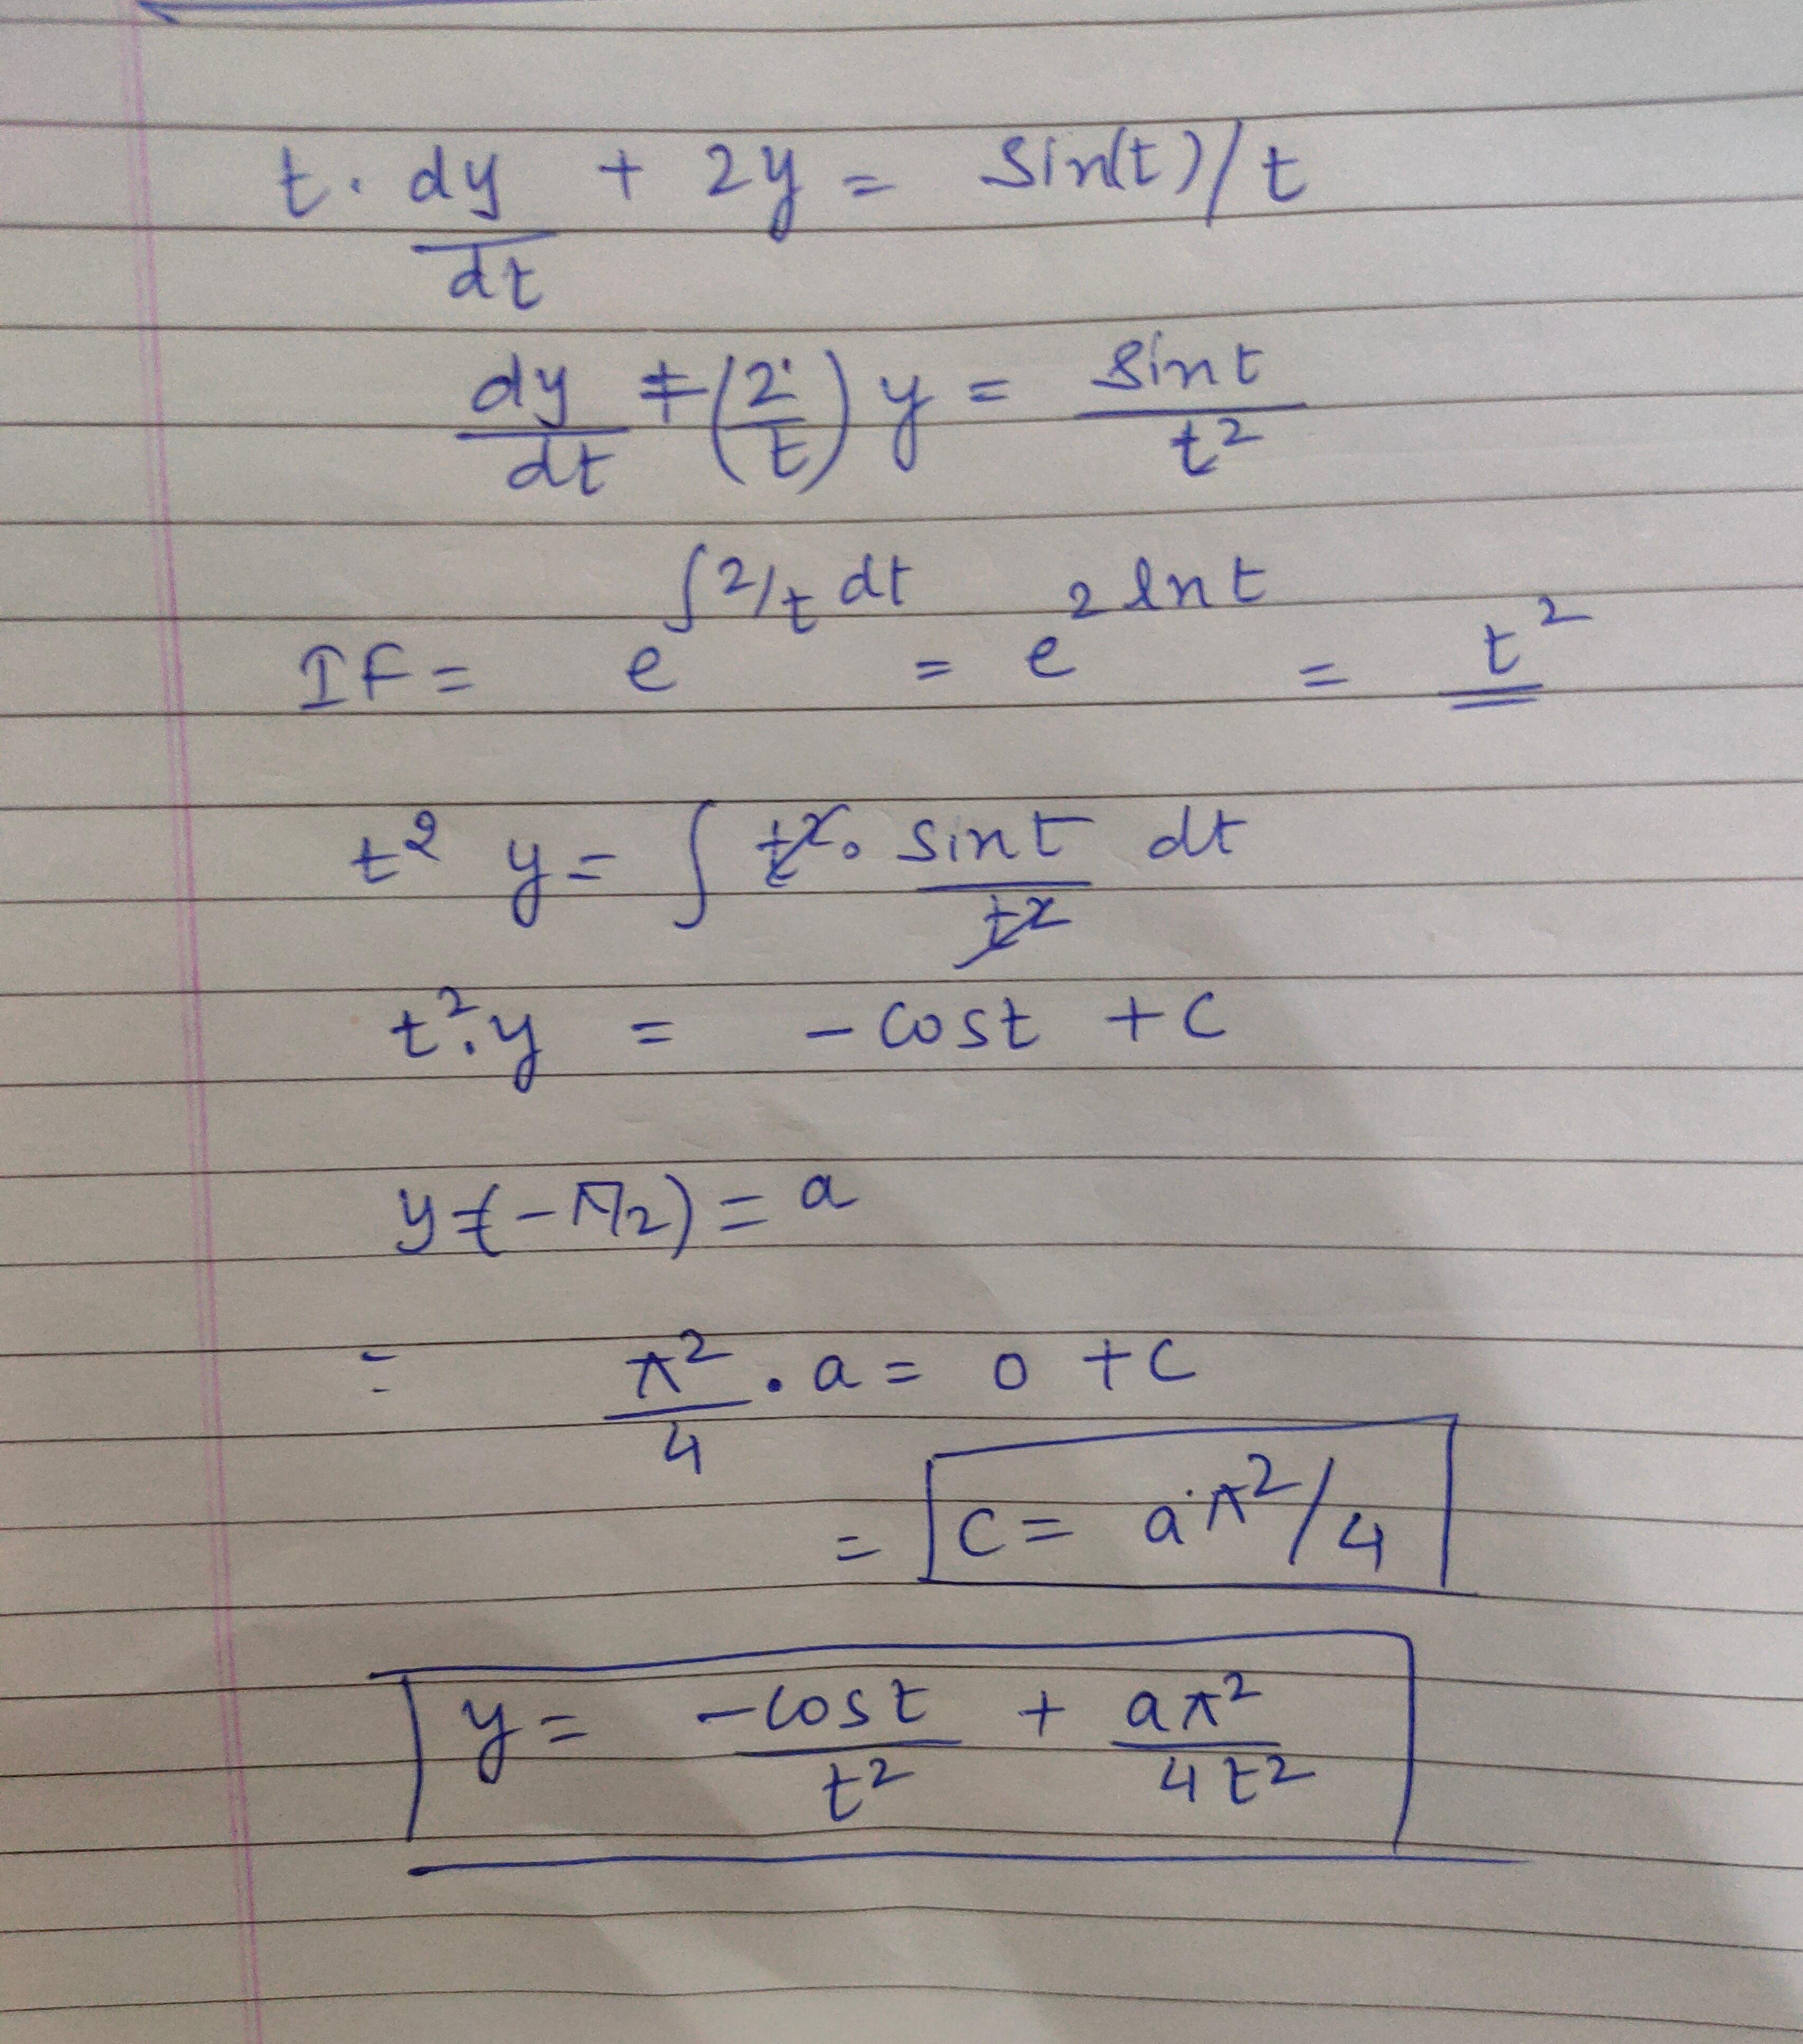 t. dy/dt + 2y = Sin(t)/t
dy/dt + (2/t) y = Sint/t²
IF = e^∫2/t dt = e^2 lnt = t²
t² y = ∫ t². sint/t² dt
t². y = - cost + C
y(-π/2) = a
= π²/4 . a = 0 + C
= C = aπ²/4
y = -cost/t² + aπ²/4t²